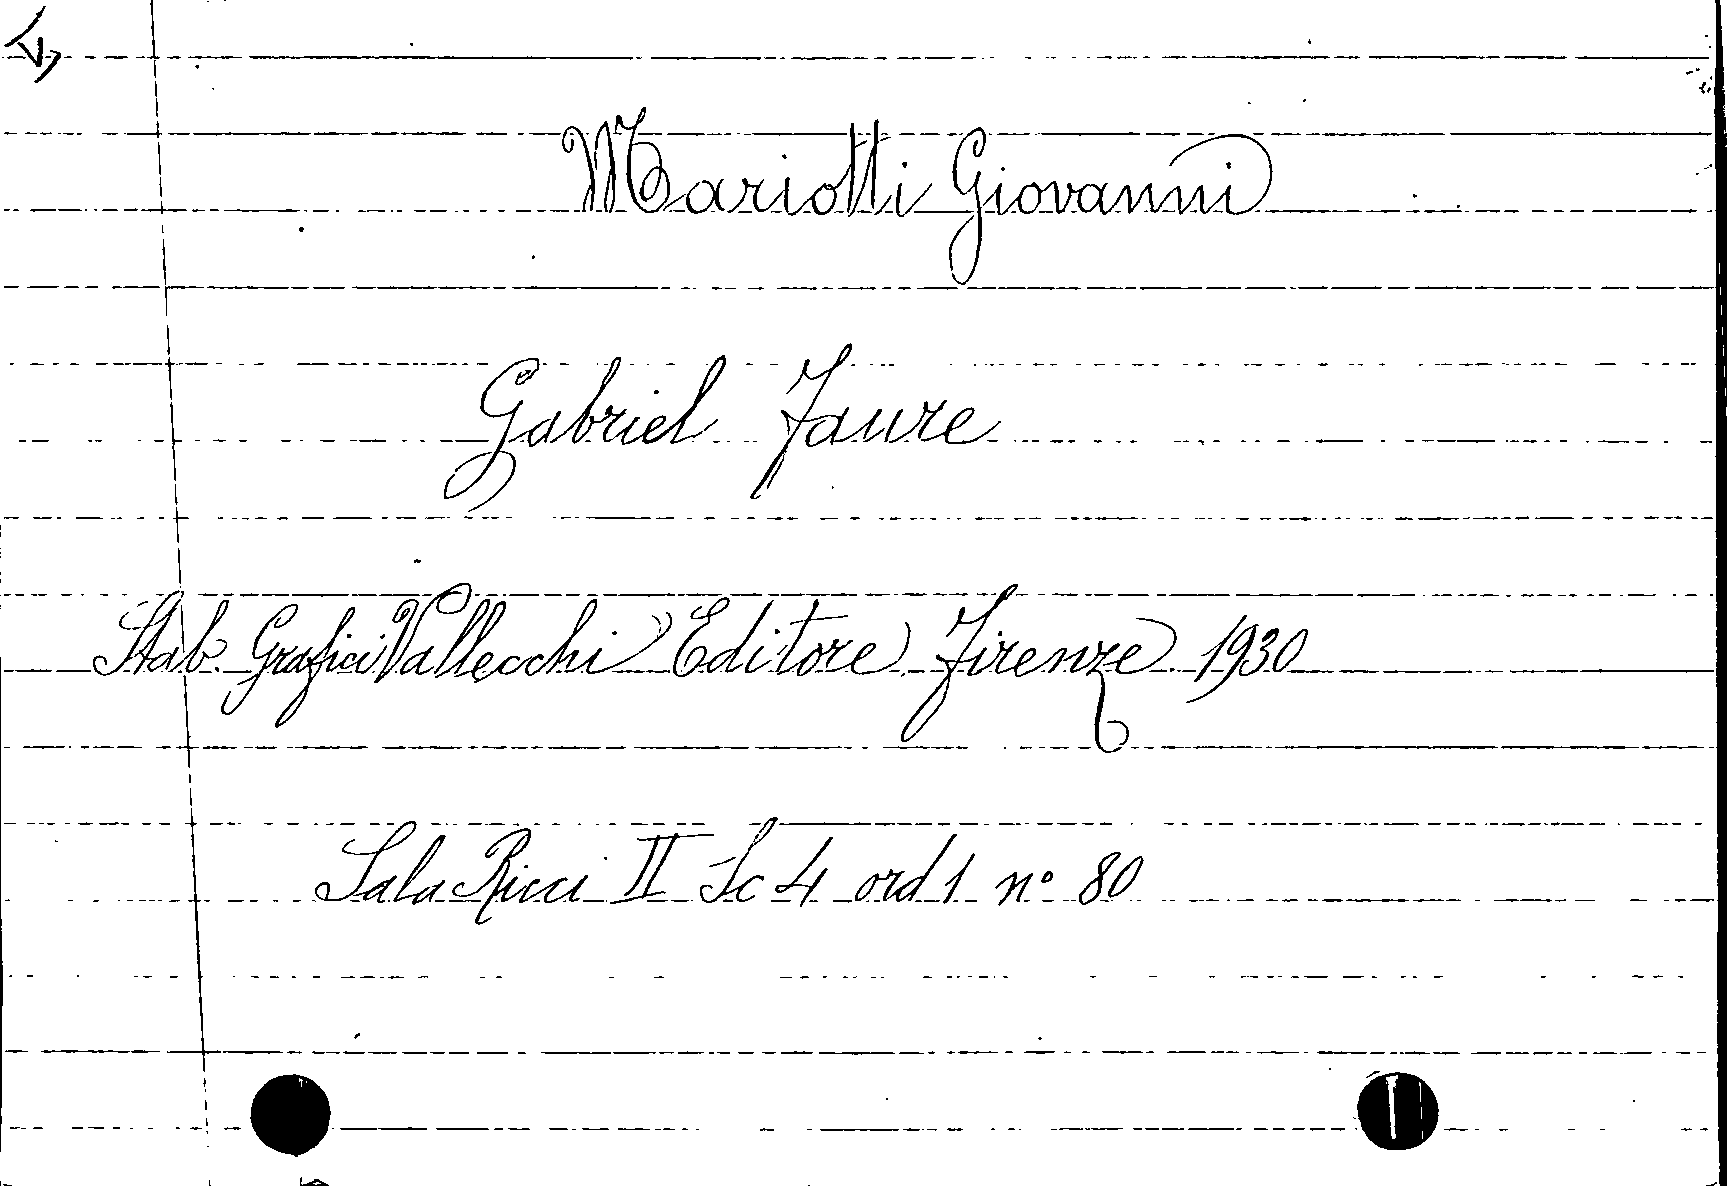 Mariotti Giovanni
Gabriel Faure
Stab. Grafici Vallecchi Editore Firenze 1930
Sala Ricci II Sc 4 ord 1 nº 80